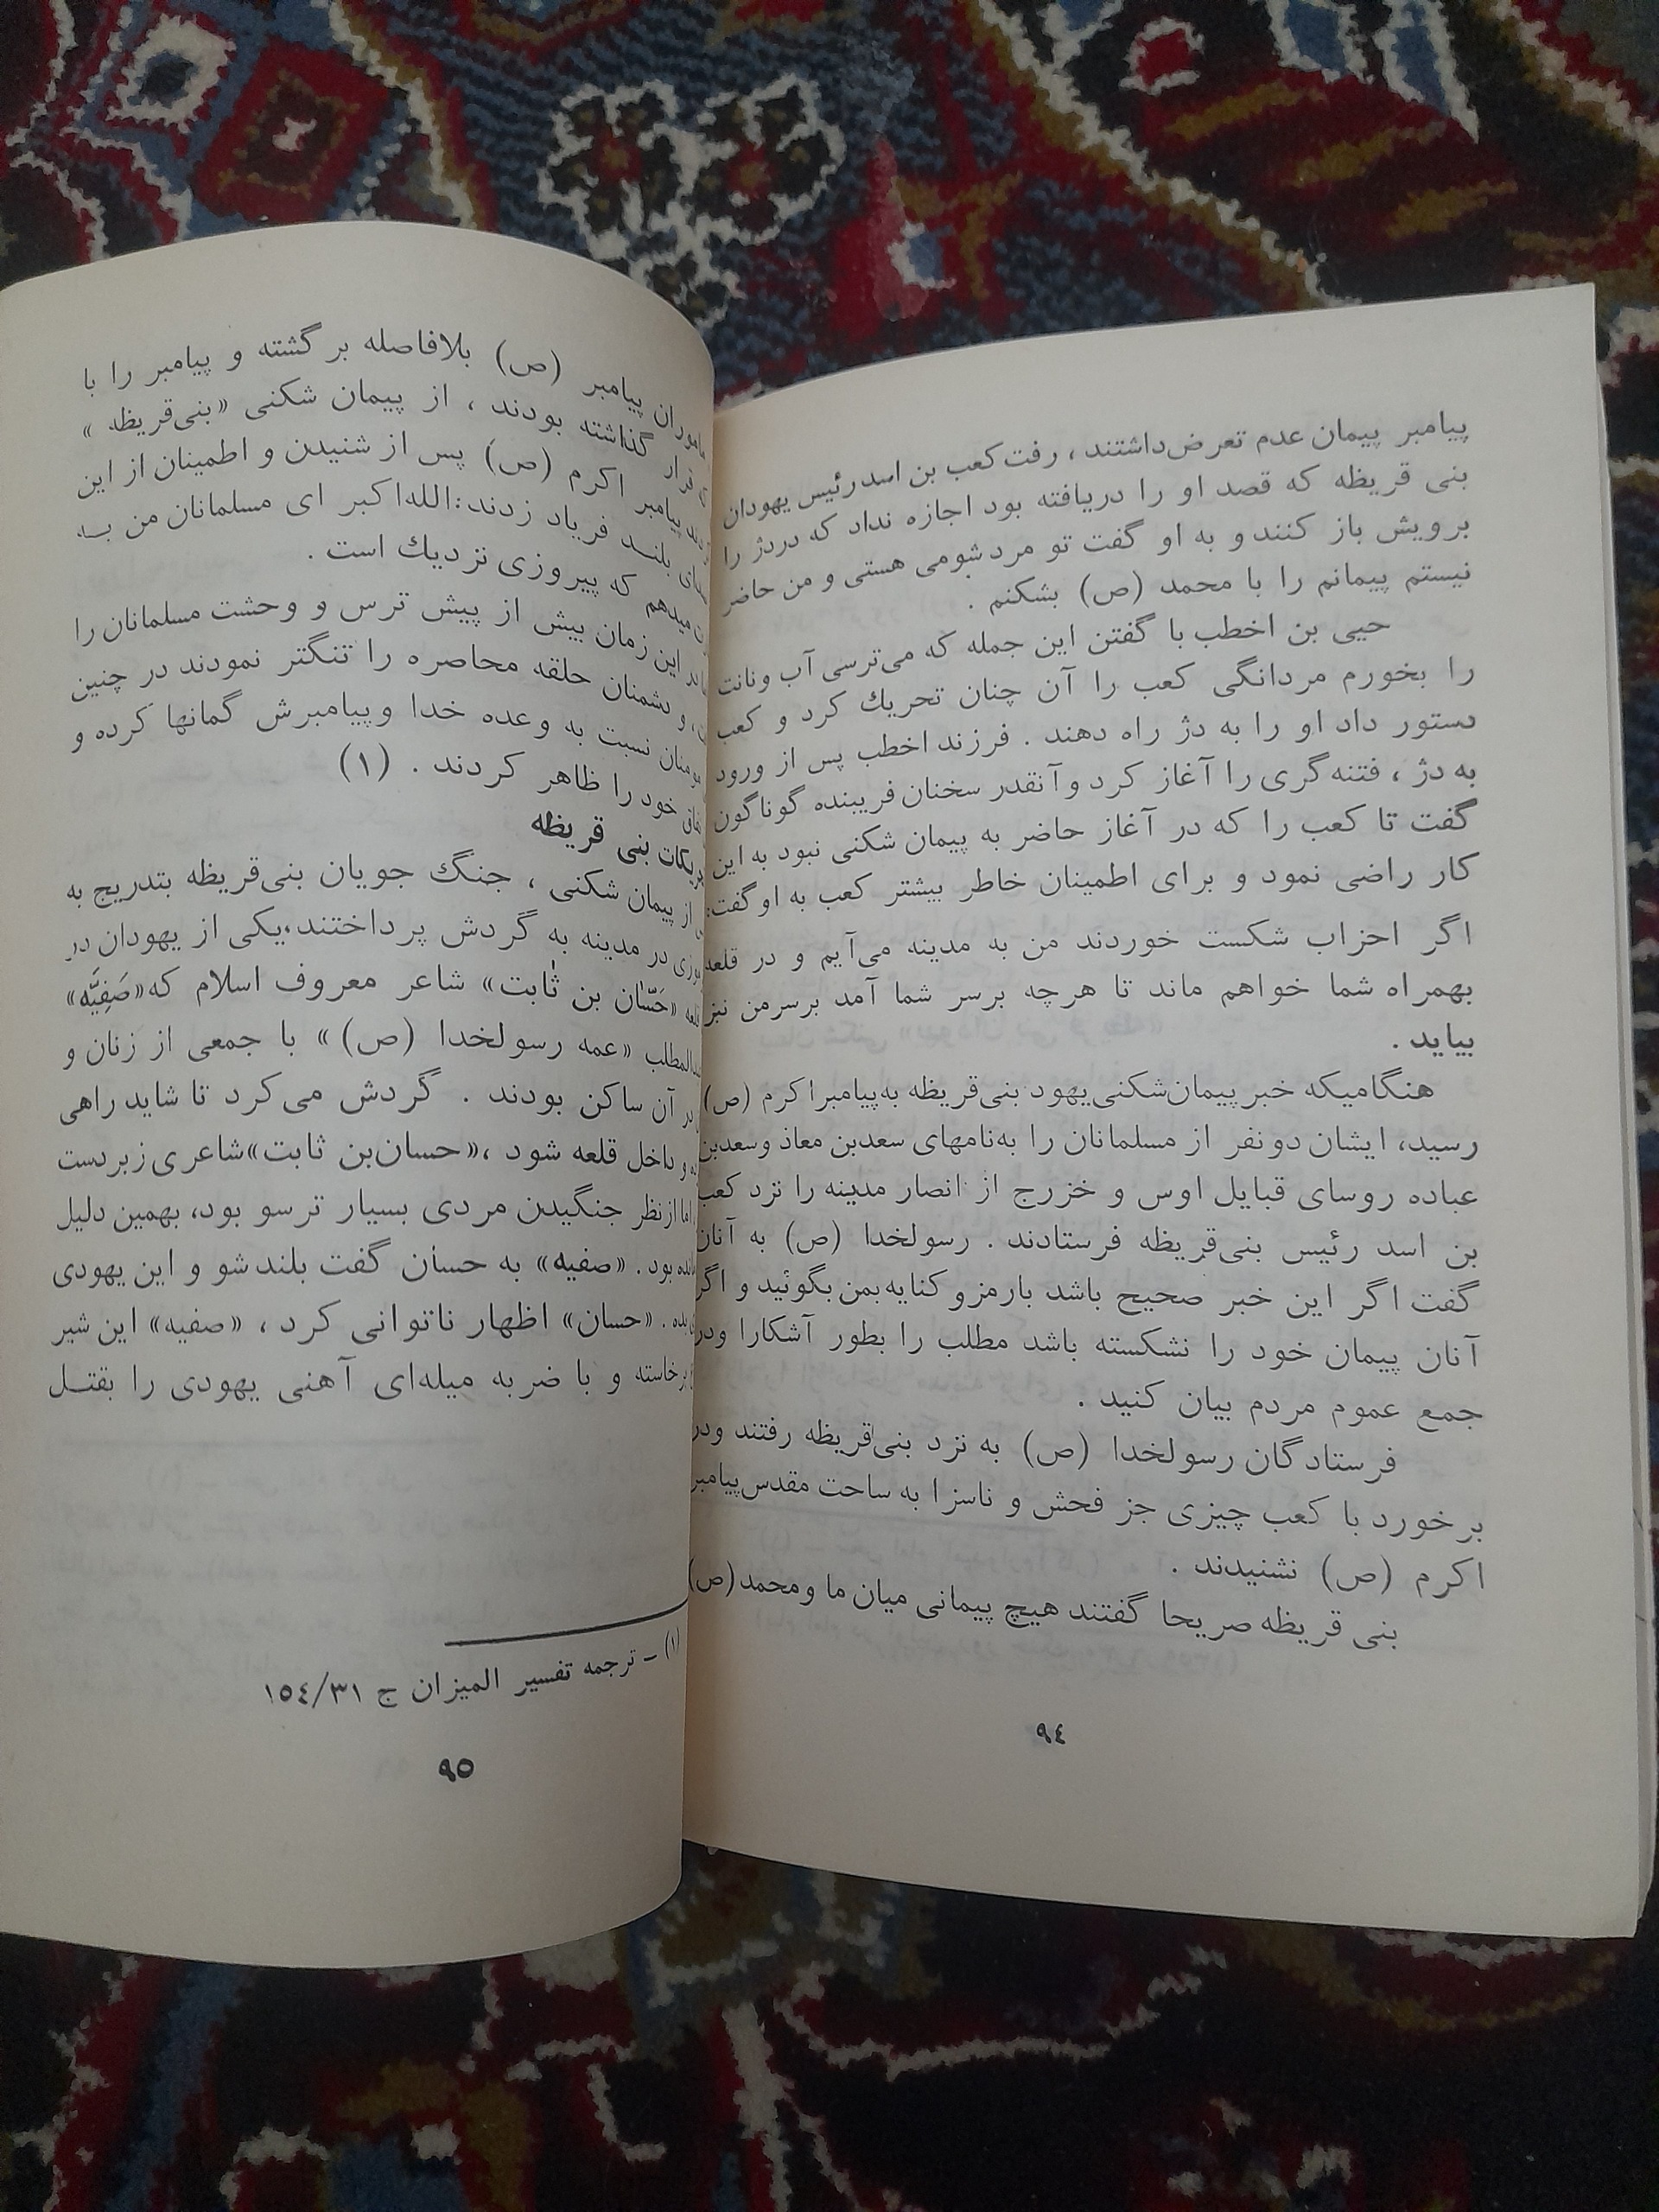 پیامبر پیمان عدم تعرض‌داشتند ، رفت کعب بن اسد رئیس یهودان
بنی قریظه که قصد او را دریافته بود اجازه نداد که دردژ را
برویش باز کنند و به او گفت تو مرد شومی هستی و من حاضر
نیستم پیمانم را با محمد (ص) بشکنم .
حیی بن اخطب با گفتن این جمله که می‌ترسی آب ونانت
را بخورم مردانگی کعب را آن چنان تحریك کرد و کعب
دستور داد او را به دژ راه دهند . فرزند اخطب پس از ورود
به دژ ، فتنه گری را آغاز کرد و آنقدر سخنان فریبنده گوناگون
گفت تا کعب را که در آغاز حاضر به پیمان شکنی نبود به این
کار راضی نمود و برای اطمینان خاطر بیشتر کعب به او گفت:
اگر احزاب شکست خوردند من به مدینه می‌آیم و در قلعه
بهمراه شما خواهم ماند تا هرچه برسر شما آمد برسرمن نیز
بیاید .
هنگامیکه خبر پیمان‌شکنی یهود بنی‌قریظه به‌پیامبر اکرم (ص)
رسید، ایشان دو نفر از مسلمانان را به‌نامهای سعدبن معاذ وسعدبن
عباده روسای قبایل اوس و خزرج از انصار مدینه را نزد کعب
بن اسد رئیس بنی‌قریظه فرستادند . رسولخدا (ص) به آنان
گفت اگر این خبر صحیح باشد بارمزو کنایه‌بمن بگوئید و اگر
آنان پیمان خود را نشکسته باشد مطلب را بطور آشکارا ودر
جمع عموم مردم بیان کنید .
فرستادگان رسولخدا (ص) به نزد بنی‌قریظه رفتند ودر
برخورد با کعب چیزی جز فحش و ناسزا به ساحت مقدس‌پیامبر
اکرم (ص) نشنیدند .
بنی قریظه صریحا گفتند هیچ پیمانی میان ما ومحمد (ص)
۹٤
پیامبر (ص) بلافاصله بر گشته و پیامبر را با
قرار گذاشته بودند ، از پیمان شکنی «بنی‌قریظه »
پیامبر اکرم (ص) پس از شنیدن و اطمینان از این
بلنـد فریاد زدند:الله‌اکبر ای مسلمانان من بـه
میدهم که پیروزی نزدیك است .
این زمان بیش از پیش ترس و وحشت مسلمانان را
و دشمنان حلقه محاصره را تنگتر نمودند در چنین
نسبت به وعده خدا و پیامبرش گمانها کرده و
خود را ظاهر کردند . (۱)
بنی قریظه
از پیمان شکنی ، جنگ جویان بنی‌قریظه بتدریج به
در مدینه به گردش پرداختند،یکی از یهودان در
«حَسّٰان بن ثٰابت» شاعر معروف اسلام که«صَفِیَّه»
«عمه رسولخدا (ص)» با جمعی از زنان و
آن ساکن بودند . گردش می‌کرد تا شاید راهی
و داخل قلعه شود ،«حسان‌بن ثابت»شاعری زبردست
اما ازنظر جنگیدن مردی بسیار ترسو بود، بهمین دلیل
بود . «صفیه» به حسان گفت بلند شو و این یهودی
بده . «حسان» اظهار ناتوانی کرد ، «صفیه» این شیر
برخاسته و با ضربه میله‌ای آهنی یهودی را بقتـل
(۱) – ترجمه تفسیر المیزان ج ۳۱/۱۵٤
۹۵